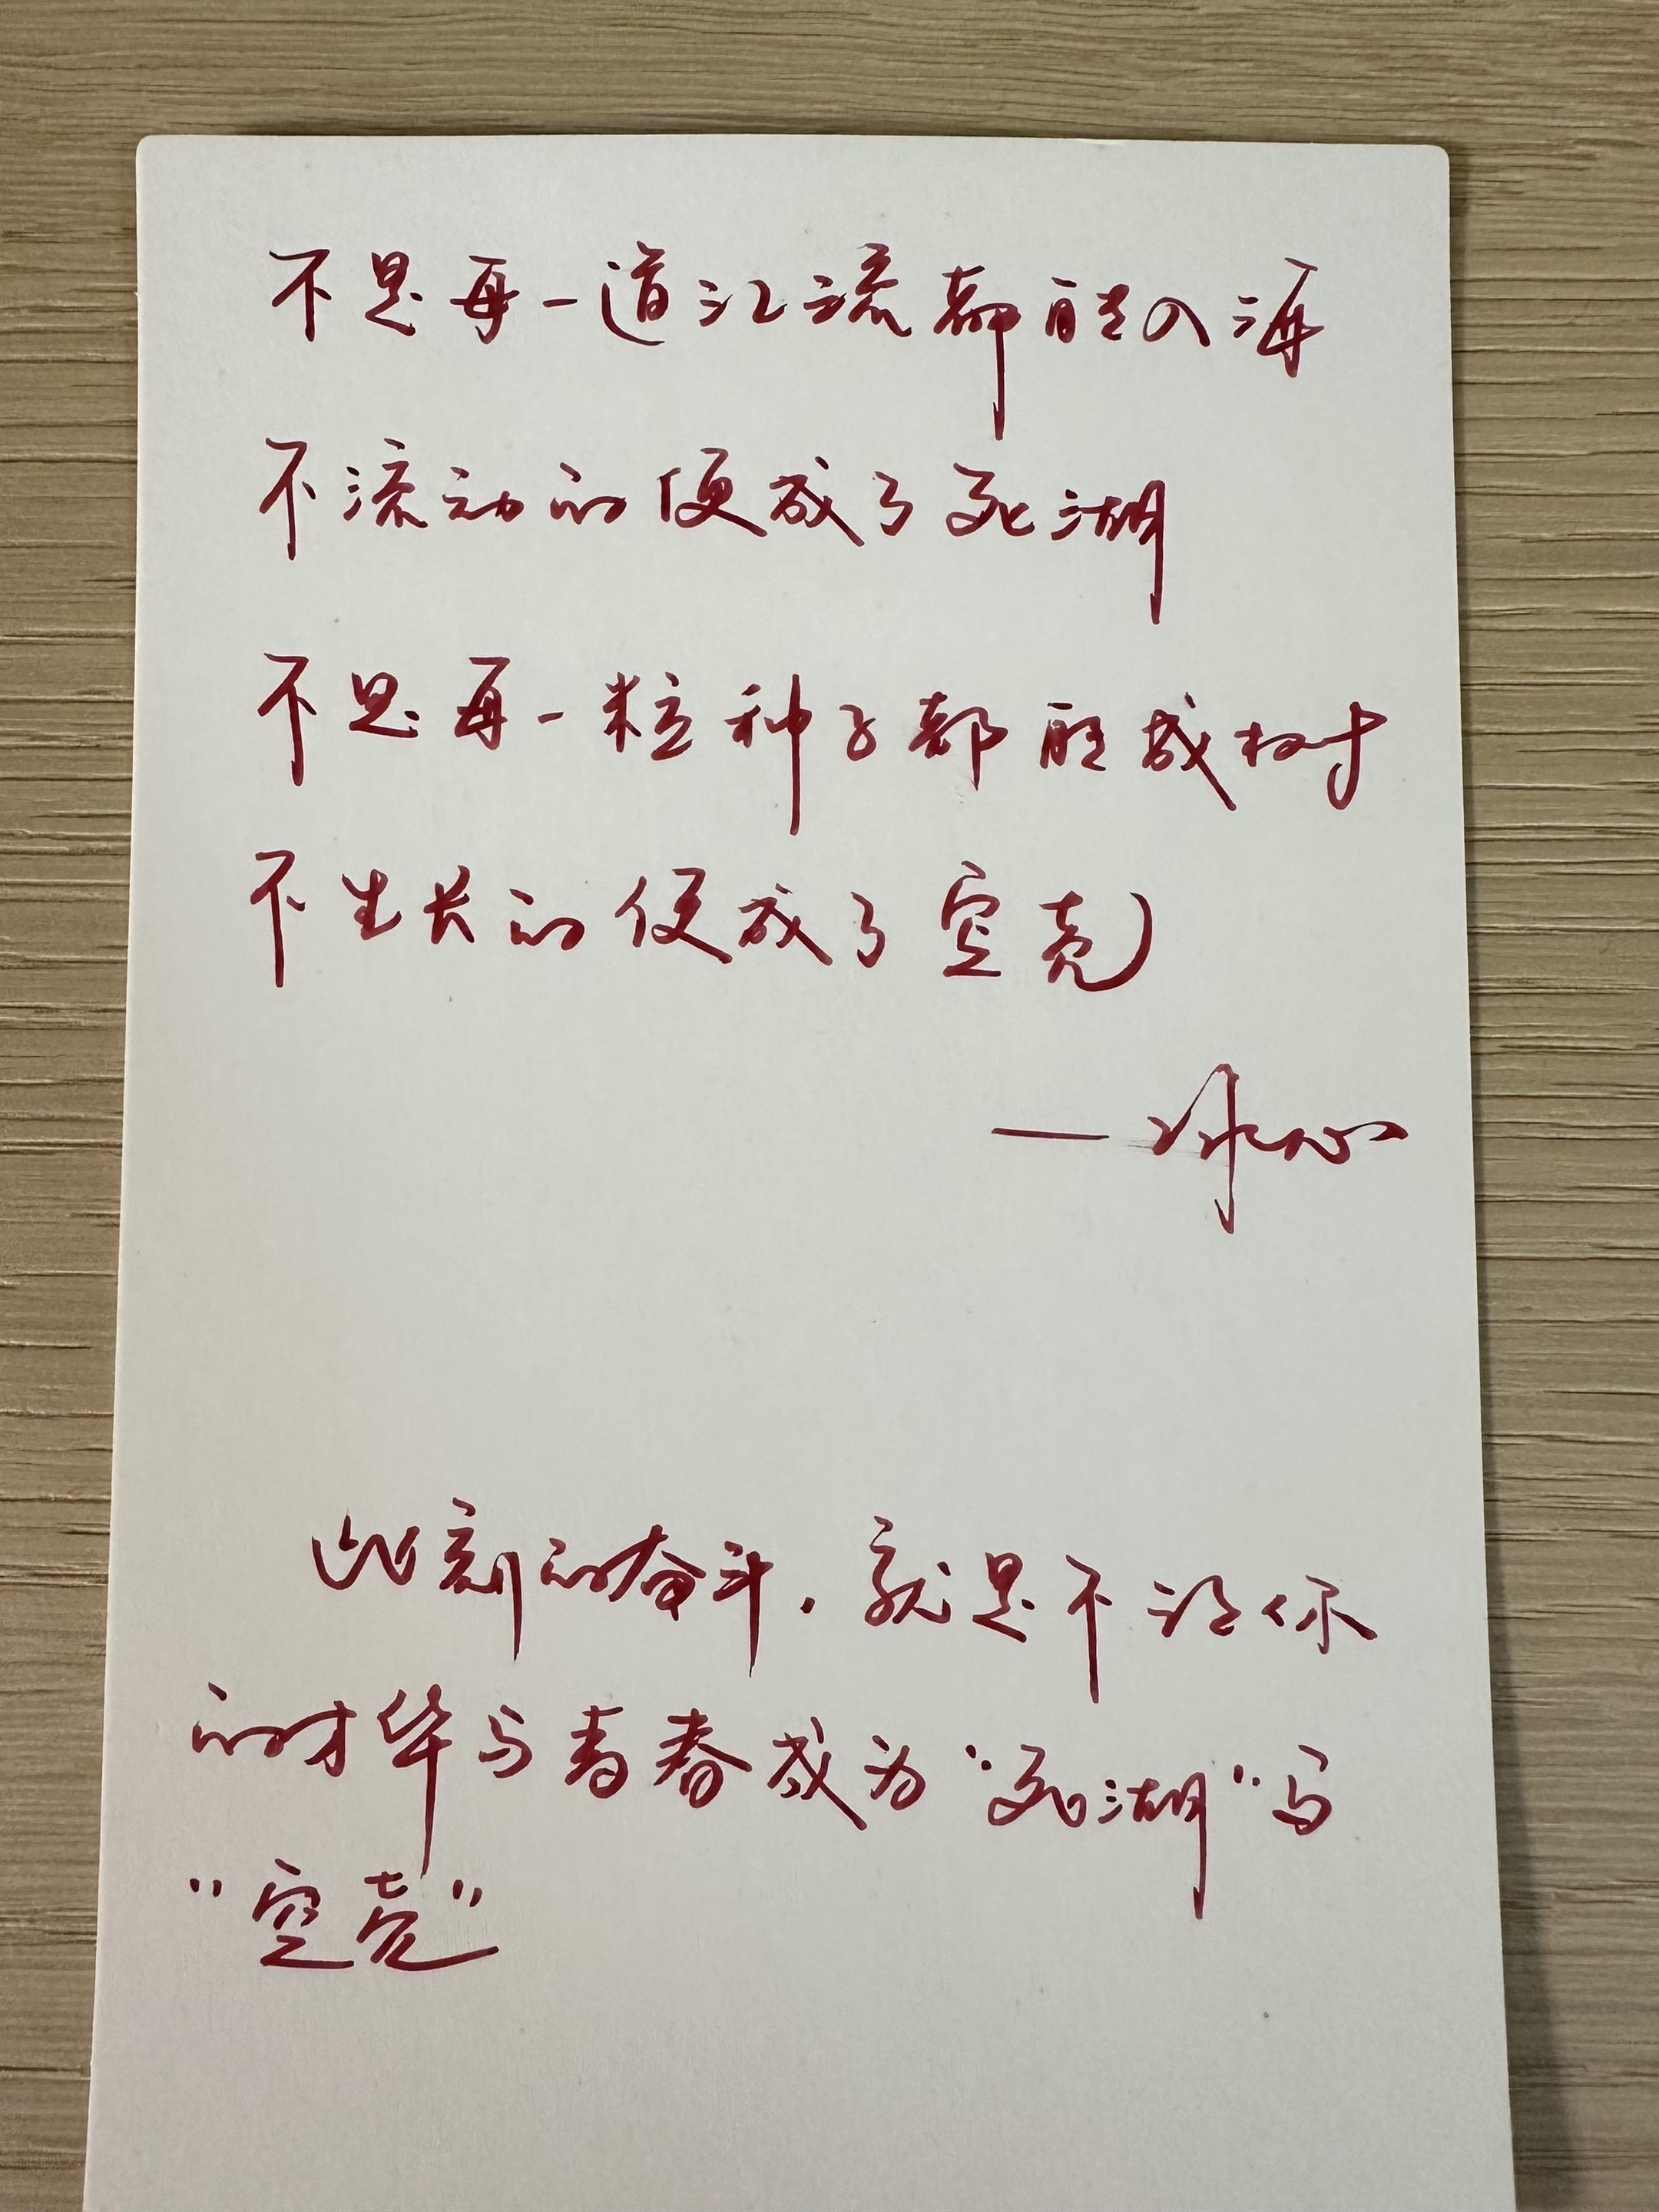 不是每一道江流都能入海
不流动的便成了死湖
不是每一粒种子都能成树
不生长的便成了空壳
—冰心
此刻的奋斗，就是不让你
的才华与青春成为“死湖”与
“空壳”